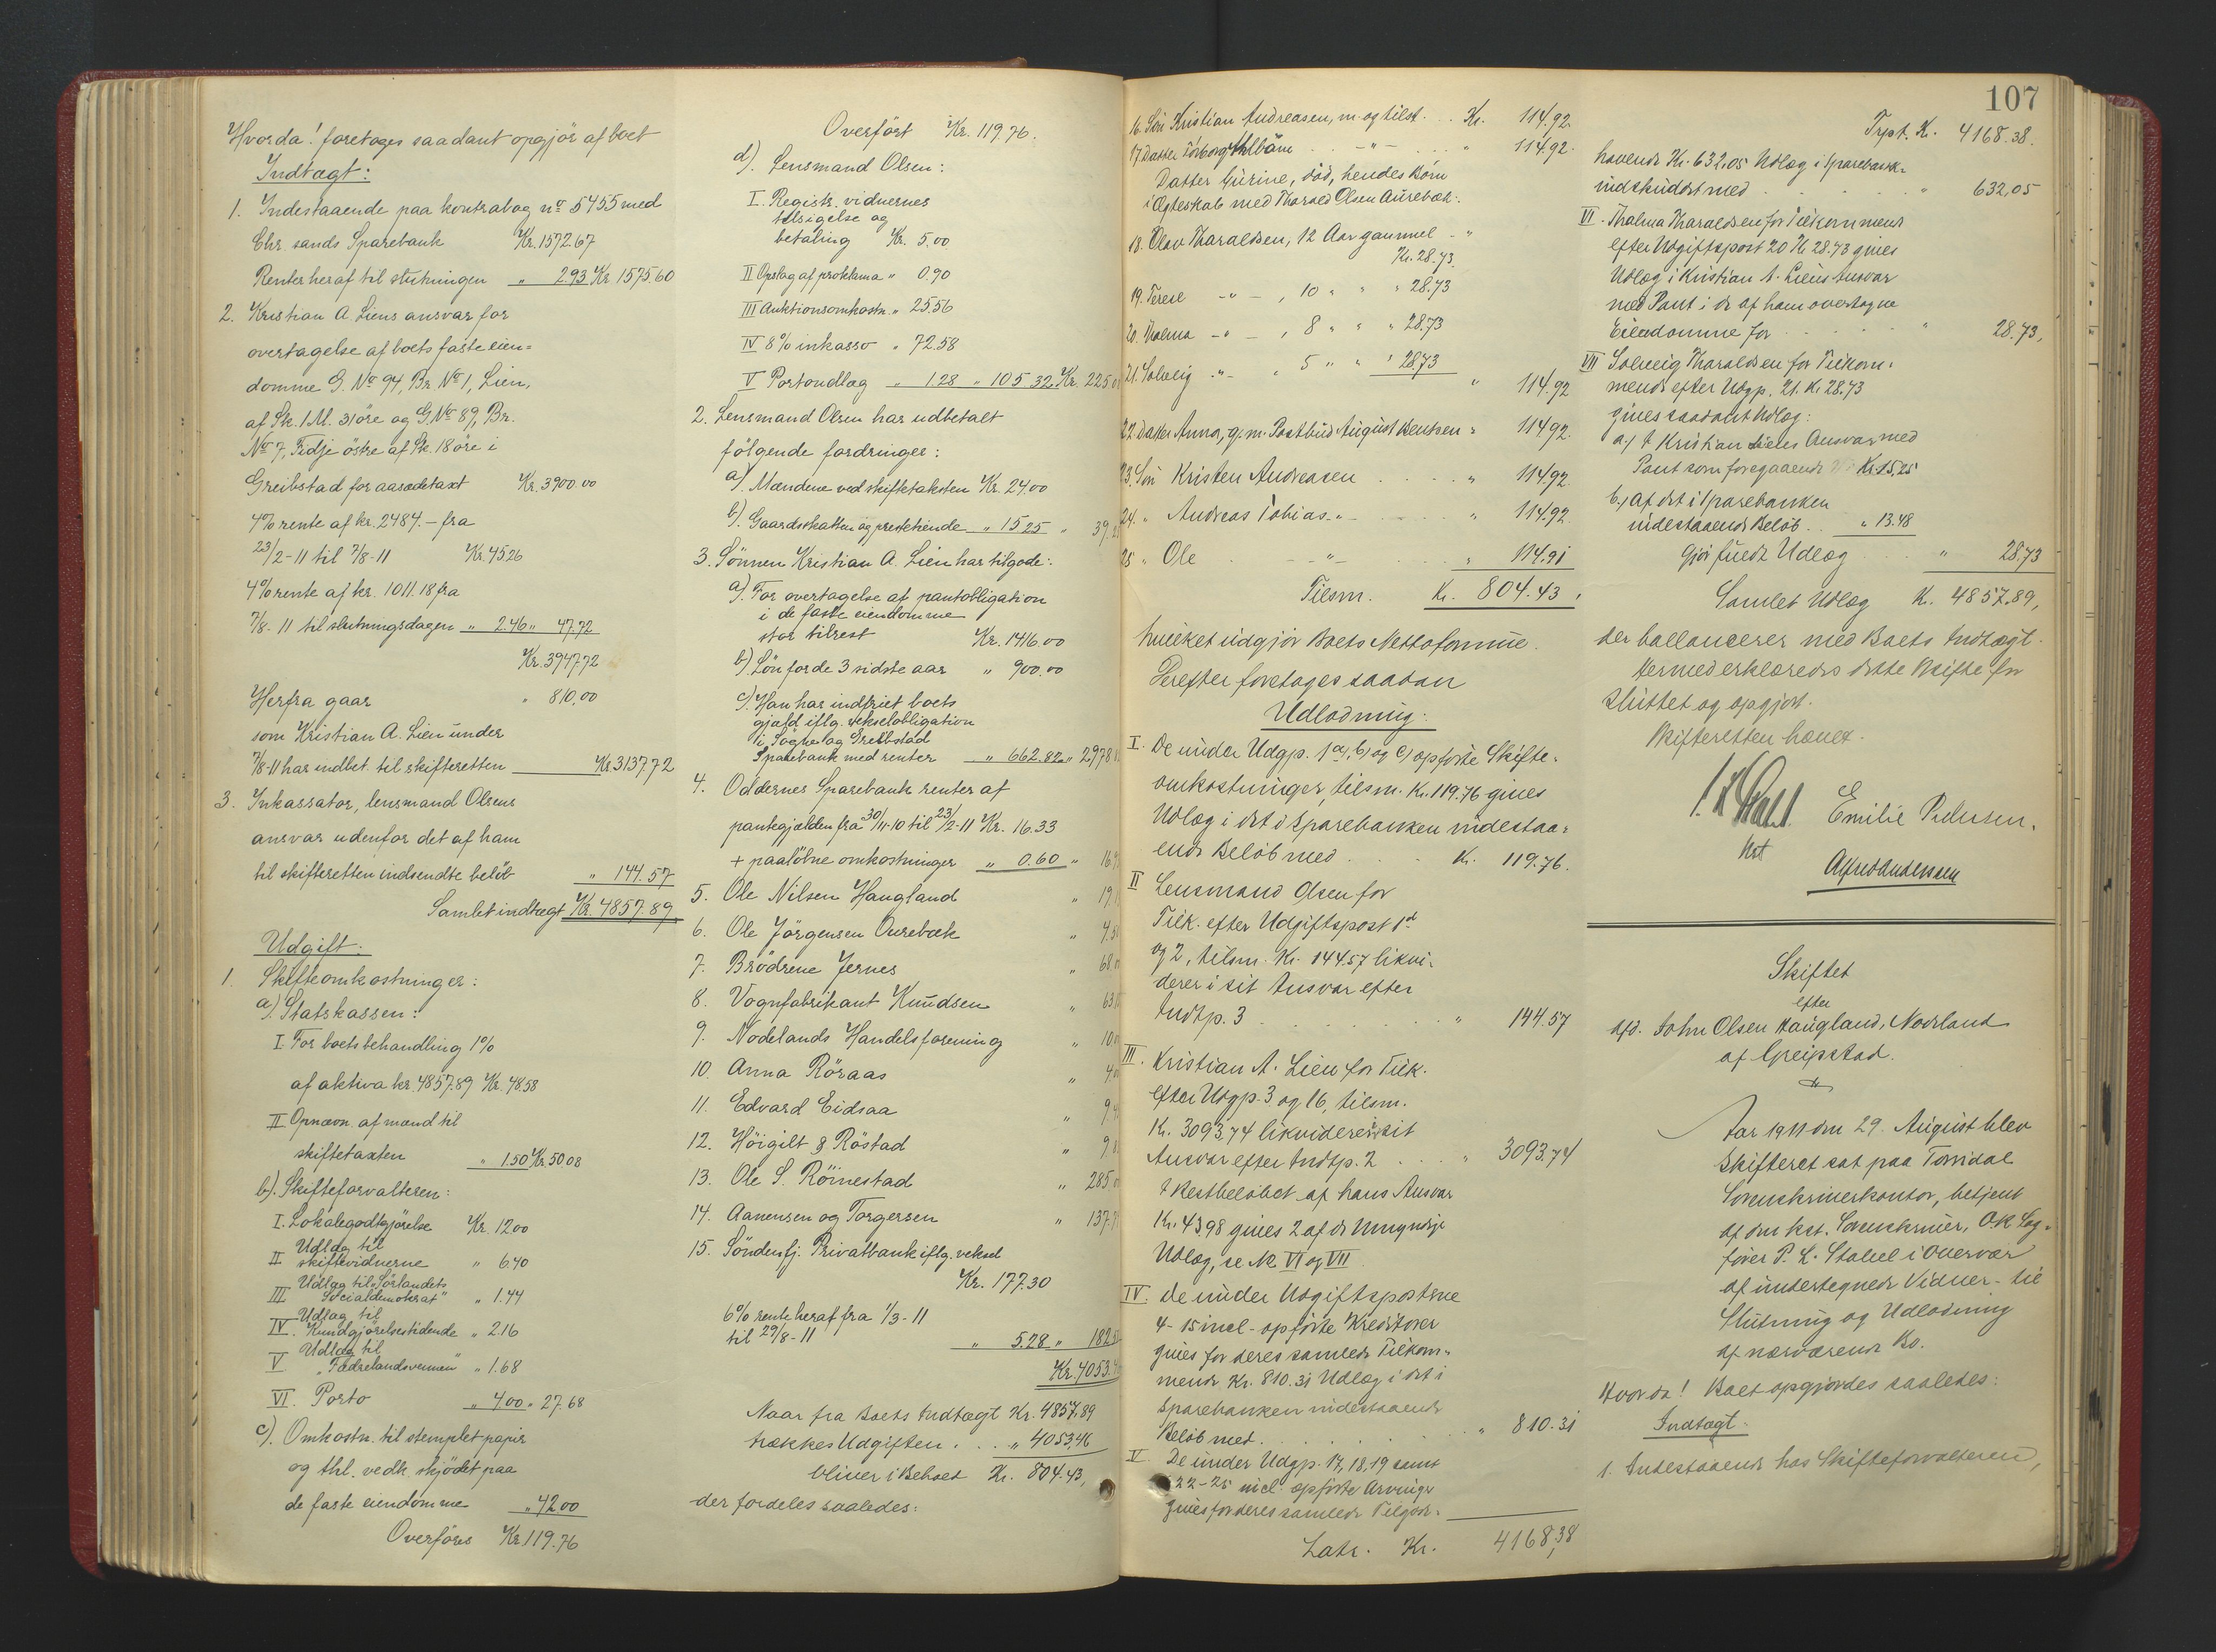 Hvorda! foretages saadant opgjör af boet
Indtægt:
1. Indestaaende paa kontrabog no 5455 med
Chr. sands Sparebank Kr. 1572.67
Renter heraf til slutningen " 2.93 Kr 1575.60
2. Kristian A Liens ansvar for
overtagelse af boets faste eien=
domme G. No 94, Br. No 1, Lien,
af Sk. 1 M. 31 öre og G. No 89, Br.
No 7, Fidje östre af Sk. 18 öre i
Greibstad for aasædetaxt Kr. 3900.00
4% rente af kr. 2484.- fra
23/2-11 til 7/8-11 Kr. 45.26
4% rente af kr. 1011.18 fra
7/8-11 til slutningsdagen " 2.46 " 47.72
Kr. 3947.72
Herfra gaar " 810.00
som Kristian A. Lien under
7/8-11 har indbet. til skifteretten Kr. 3137.72
3. Inkassator, lensmand Olsens
ansvar udenfor det af ham
til skifteretten indsendte belöb " 144.57
Samlet indtægt Kr. 4857.89
Udgift:
1. Skifteomkostninger:
a). Statskassen:
I. For boets behandling 1%
af aktiva kr. 4857.89 Kr. 48.58
II Opnævn. af mænd til
skiftetaxten " 1.50 Kr. 50.08
b). Skifteforvalteren:
I. Lokalegodtgjörelse Kr. 12.00
II Udlæg til
skiftevidnerne " 6.40
III Udlæg til "Sörlandets
Socialdemokrat" " 1.44
IV. Udlæg til
Kundgjörelsestidende " 2.16
V Udlæg til
"Fædrelandsvennen" " 1.68
VI. Porto " 4.00 " 27.68
c). Omkostn. til stemplet papir
og thl. vedk. skjödet paa
de faste eiendomme " 42.00
Overföres Kr. 119.76
Overfört Kr. 119.76.
d). Lensmand Olsen:
I. Registr. vidnernes
tilsigelse og
betaling Kr. 5.00
II Opslag af proklama " 0.90
III Auktionsomkostn. " 25.56
IV 8% inkasso " 72.58
V Portoudlæg " 1.28 " 105.32 Kr. 225.0
2. Lensmand Olsen har udbetalt
fölgende fordringer:
a). Mændene ved skiftetaksten Kr. 24.00
b). Gaardsskatten og prestetiende " 15.25 " 39.2
3. Sönnen Kristian A. Lien har tilgode:
a). For overtagelse af pantobligation
i de faste eiendomme
stor tilrest Kr. 1416.00
b). Lön for de 3 sidste aar " 900.00
c). Han har indfriet boets
gjæld iflg. vekselobligation
i Sögne og Greibstad
Sparebank med renter " 662.82 " 2978
4. Oddernes Sparebank renter af
pantegjælden fra 30/11-10 til 23/2-11 Kr. 16.33
+ paalöbne omkostninger " 0.60 " 16.
5. Ole Nilsen Haugland " 19.
6. Ole Jörgensen Ourebæk " 4.5
7. Brödrene Jernes " 68
8. Vognfabrikant Knudsen " 63
9. Nodelands Handelsforening " 10
10. Anna Röraas " 4
11. Edvard Eidsaa " 9
12. Höigilt & Röstad " 9
13. Ole S. Röinestad " 285
14. Aanensen og Torgersen " 137.
15. Söndenfj. Privatbank iflg. veksel
Kr. 177.30
6% rente heraf fra 1/3-11
til 29/8-11 " 5.28 " 182
Kr. 4053.
Naar fra Boets Indtægt Kr. 4857,89
trækkes Udgiften . . . " 4053,46
bliver i Behold Kr. 804.43,
der fordeles saaledes:
107
16. Sön Kristian Andreasen, m. og tilst. . . Kr. 114.92.
17. Datter Torborg . . - " - . . . " 114.92.
Datter Gurine, död, hendes Börn
i Ægteskab med Tharald Olsen Aurebæk:
18. Olav Tharaldsen, 12 Aar gammel - "
Kr. 28.73
19. Terese - " - , 10 " " " 28.73
20. Thalma - " - , 8 " " " 28.73
21. Solveig - " - " 5 " " " 28.73
" 114.92
22. Datter Anna, g. m. Postbud August Bentsen " 114.92.
23. Sön Kristen Andreasen . . . . " 114.92.
24. " Andreas Tobias - " - . . . " 114.92.
25 " Ole . - " - . . . " 114.91
Tilsm. Kr. 804.43,
hvilket udgjör Boets Nettoformue.
Derefter foretages saadan
Udlodning:
I. De under Udgp. 1 a, b, og c, opförte Skifte-
omkostninger, tilsm. Kr. 119.76 gives
Udlæg i det i Sparebanken indestaa-
ende Belöb med . . . Kr. 119.76.
II Lensmand Olsen for
Tilk. efter Udgiftspost 1 d
og 2, tilsm. Kr. 144.57 likvi-
derer i sit Ansvar efter
Indtp. 3 . . . . . . " 144.57
III. Kristian A. Lien for Tilk.
efter Udgp. 3 og 16, tilsm.
Kr. 3093.74 likviderer i sit
Ansvar efter Indtp. 2 . . . " 3093.74
I Restbelöbet af hans Ansvar
Kr. 43.98 gives 2 af de Umyndige
Udlæg, se No VI og VII.
IV. De under Udgiftsposterne
4-15 incl. opförte Kreditorer
gives for deres samlede Tilkom-
mende Kr. 810.31 Udlæg i det i
Sparebanken indestaaende
Belöb med . . . . . . " 810.31
V. De under Udgp. 17, 18, 19 samt
22-25 incl. opförte Arvinger
gives for deres samlede Tilgode-
Latr. Kr. 4168,38
Trpt. Kr. 4168.38.
havende Kr. 632.05 Udlæg i Sparebank-
indskuddet med . . . . . " 632,05
VI. Thalma Tharaldsen for Tilkommende
efter Udgiftspost 20 Kr. 28.73 gives
Udlæg i Kristian A. Liens Ansvar
med Pant i de af ham overtagne
Eiendomme for . . . . " 28.73,
VII Solveig Tharaldsen for Tilkom-
mende efter Udgp. 21. Kr. 28.73
gives saadant Udlæg:
a) I Kristian Liens Ansvar med
Pant som foregaaende Kr. 15.25
b) Af det i Sparebanken
indestaaende Belöb . . " 13.48
Gjör fuldt Udlæg . . " 28.73
Samlet Udlæg Kr. 4857.89,
der ballancerer med Boets Indtægt.
Hermed erklæredes dette Skifte for
sluttet og opgjort.
Skifteretten hævet.
Emilie Pedersen.
kst
Alfred Andersen
Skiftet
efter
afd. John Olsen Haugland, Nodeland
af Greipstad.
Aar 1911 den 29. August blev
Skifteret sat paa Torridal
Sorenskriverkontor, betjent
af den kst. Sorenskriver, O.R. Sag-
förer P. L. Stabel i Overvær
af undertegnede Vidner - til
Slutning og Udlodning
af nærværende Bo.
Hvorda! Boet opgjordes saaledes:
Indtægt.
1. Indestaaende hos Skifteforvalteren,